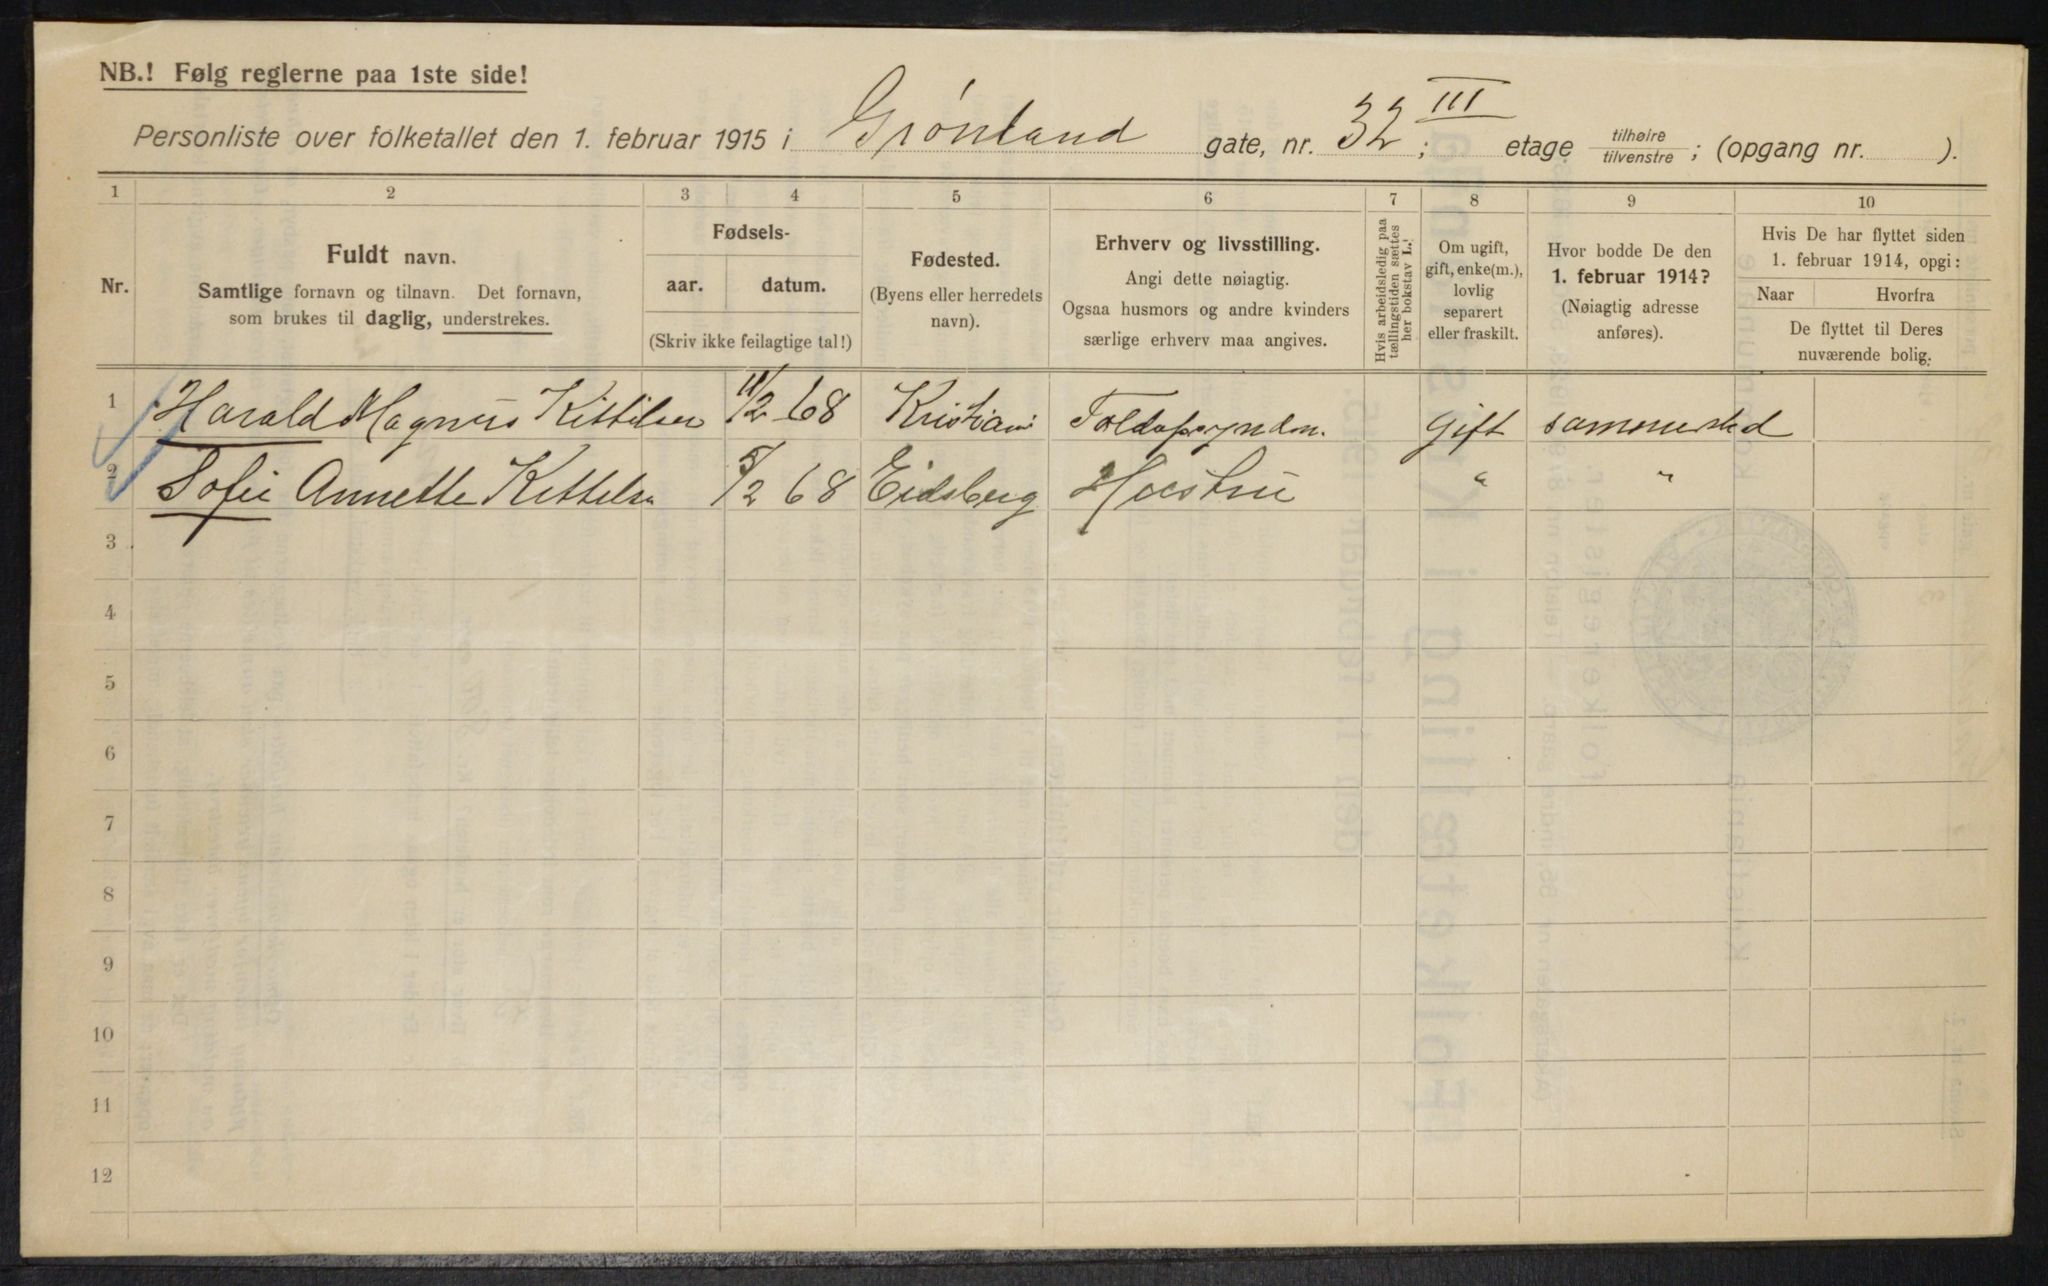 NB.! Følg reglerne paa 1ste side!
Personliste over folketallet den 1. februar 1915 i Grønland gate, nr. 32 III ; etage tilhøire tilvenstre ; (opgang nr. ).
1 2 3 4 5 6 7 8 9 10
Nr.
Fuldt navn.
Samtlige fornavn og tilnavn. Det fornavn,
som brukes til daglig, understrekes.
Fødsels-
aar. datum.
(Skriv ikke feilagtige tal!)
Fødested.
(Byens eller herredets
navn).
Erhverv og livsstilling.
Angi dette nøiagtig.
Ogsaa husmors og andre kvinders
særlige erhverv maa angives.
Hvis arbeidsledig paa
tællingstiden sættes
her bokstav L.
Om ugift,
gift, enke(m.),
lovlig
separert
eller fraskilt.
Hvor bodde De den
1. februar 1914?
(Nøiagtig adresse
anføres).
Hvis De har flyttet siden
1. februar 1914, opgi:
Naar Hvorfra
De flyttet til Deres
nuværende bolig.
1 Harald Magnus Kittilsen 11/2 68 Kristiani Gift sammested
2 Sofie Annette Kittelsn 5/2 68 Eidsberg Hustru " "
3
4
5
6
7
8
9
10
11
12